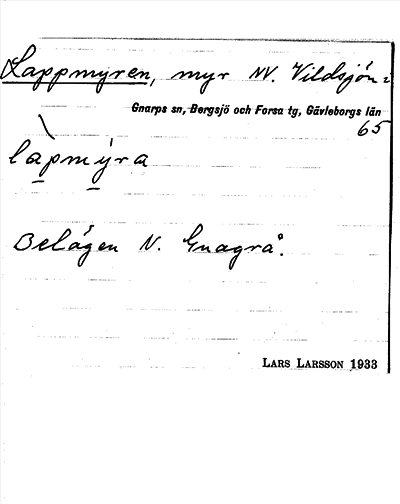 Lappmyren, myr NV. Vildsjön i
Gnarps sn, Bergsjö och Forsa tg, Gävleborgs län
65
làpmýra
Belägen N. Gnagrå.
LARS LARSSON 1933